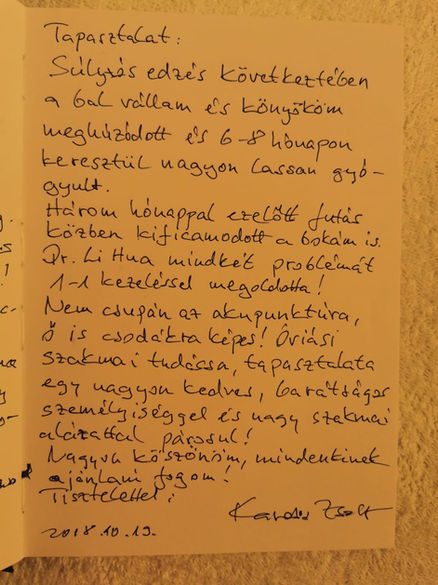 Tapasztalat:
Súlyzós edzés következtében
a bal vállam és könyököm
meghúzódott és 6-8 hónapon
keresztül nagyon lassan gyó-
gyult.
Három hónappal ezelőtt futás
közben kificamodott a bokám is.
Dr. Li Hua mindkét problémát
1-1 kezeléssel megoldotta!
Nem csupán az akupunktúra,
ő is csodákra képes! Óriási
szakmai tudása, tapasztalata
egy nagyon kedves, barátságos
személyiséggel és nagy szakmai
alázattal párosul!
Nagyon köszönöm, mindenkinek
ajánlani fogom!
Tisztelettel:
Zsolt
2018.10.19.